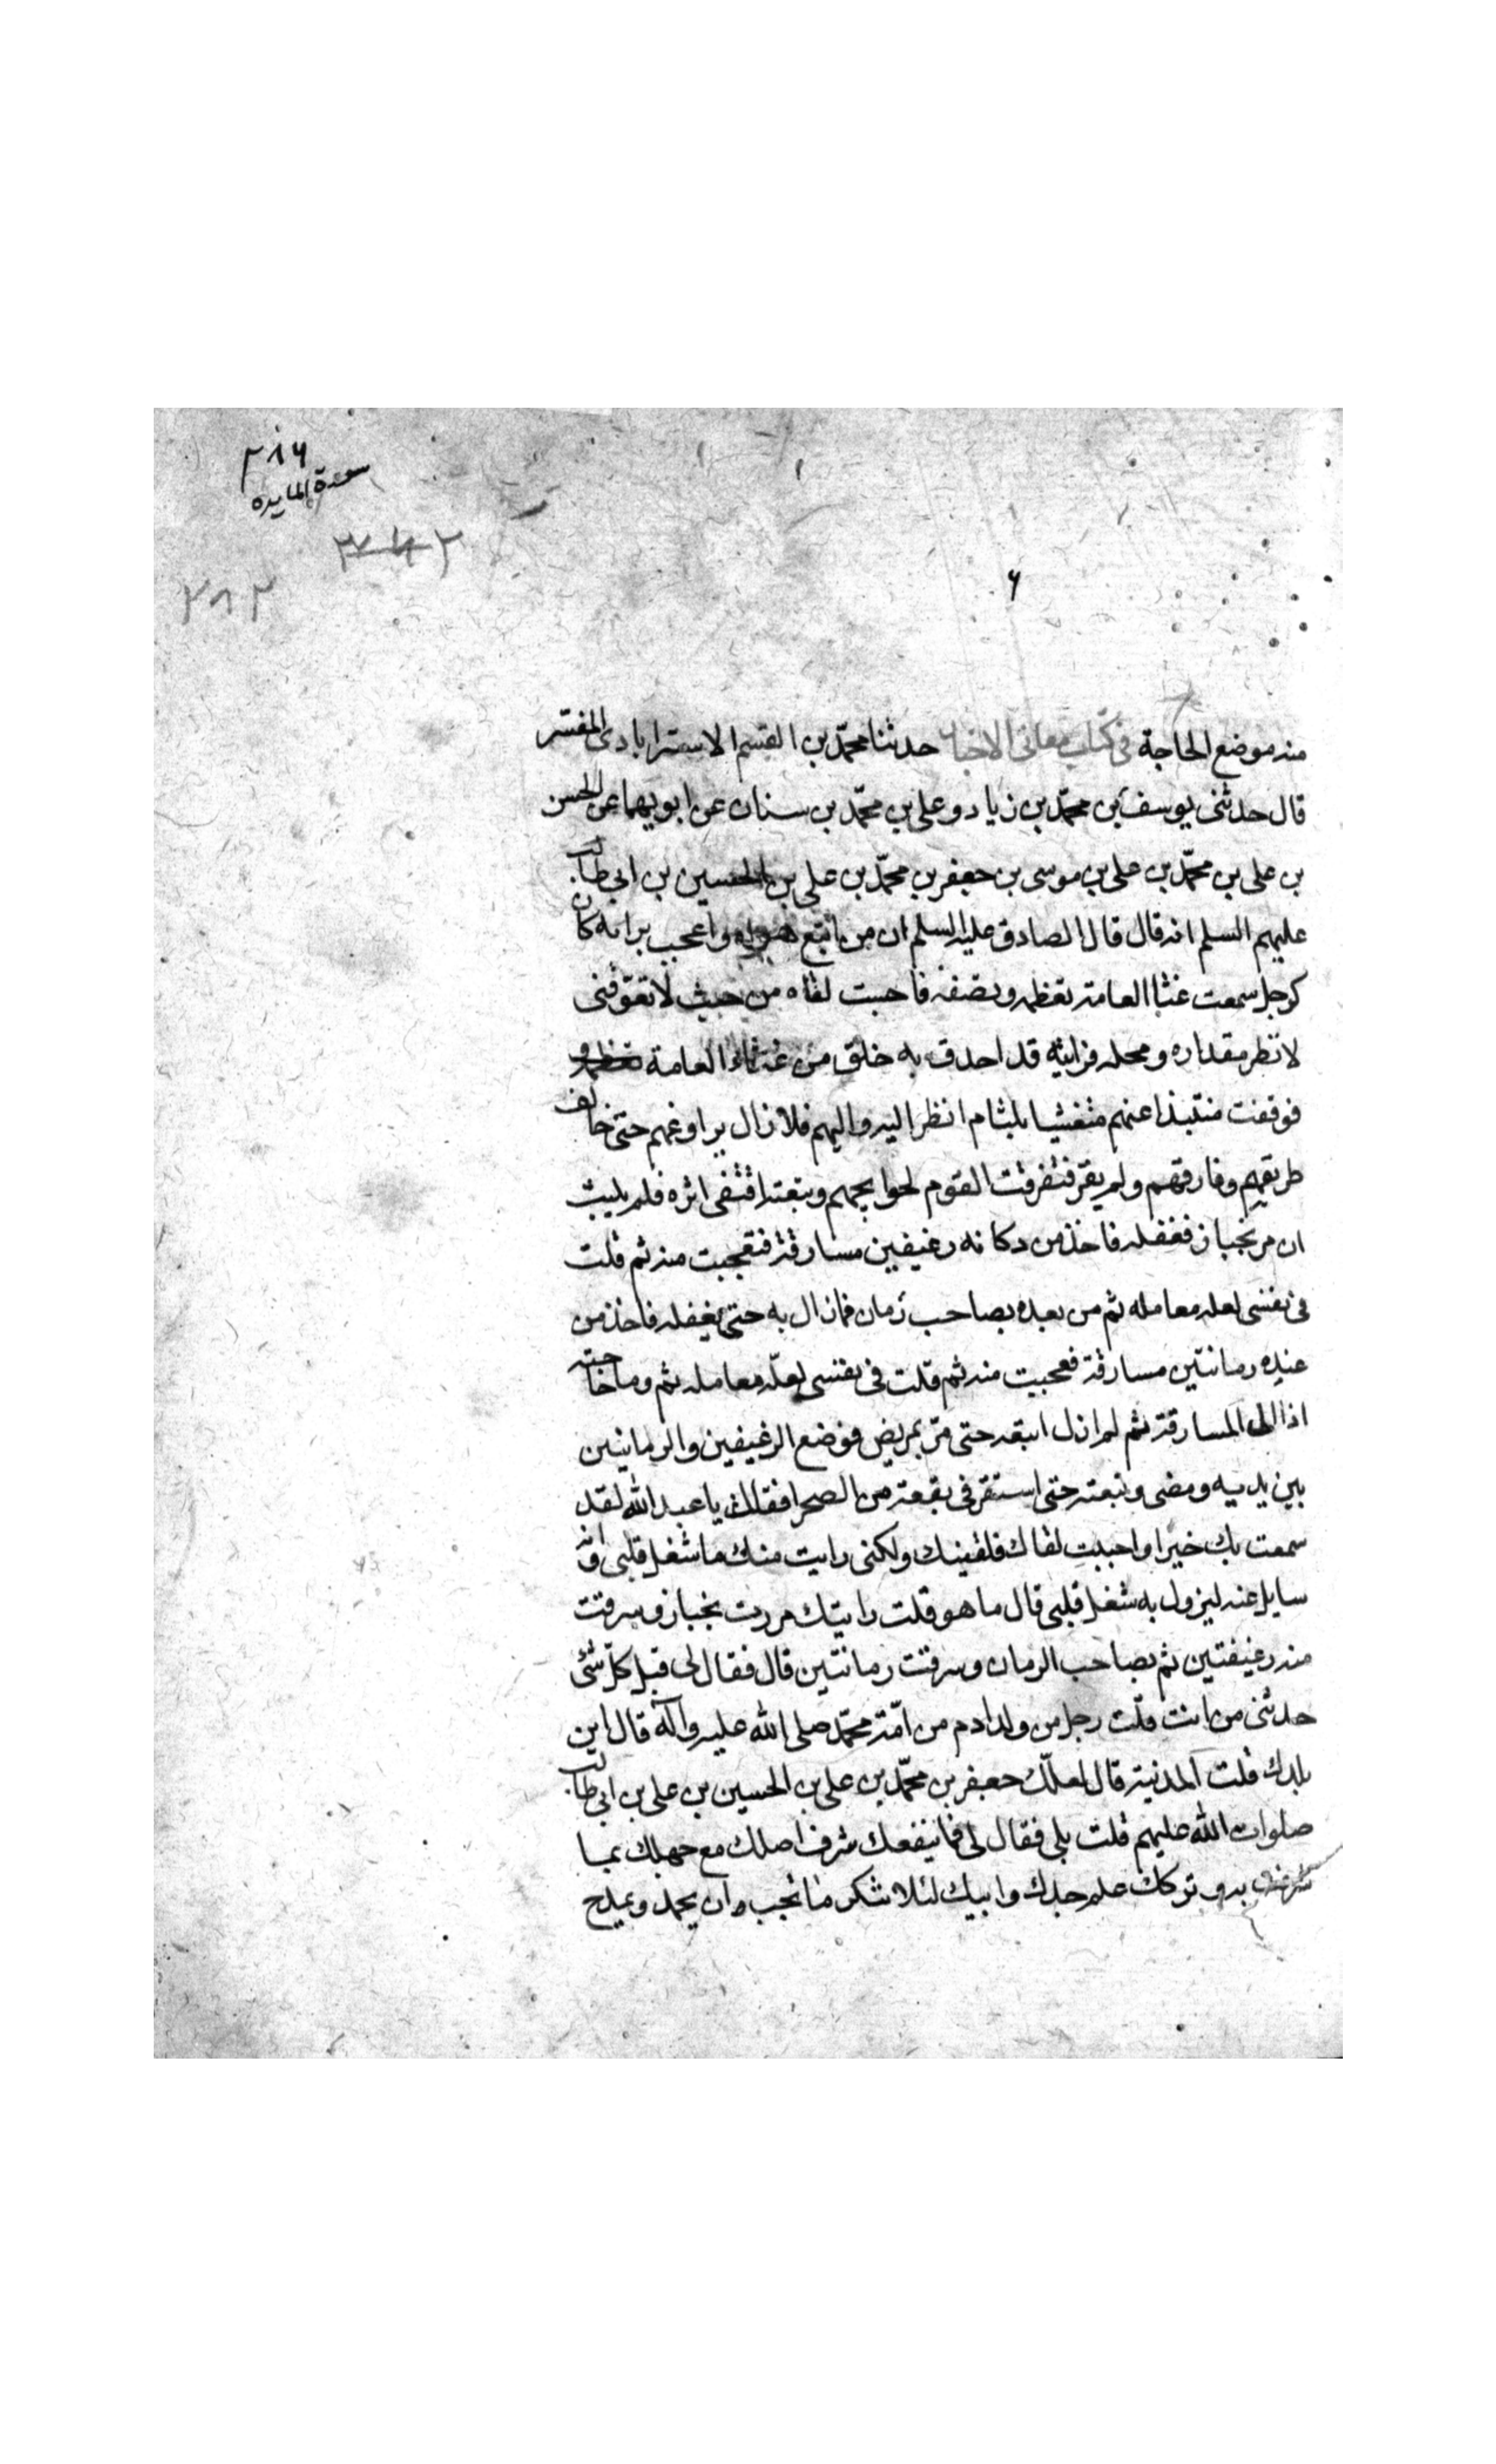 ٢٨٦
سورة المايده
٢٨٢
منه موضع الحاجة فى كتاب معانى الاخبار حدثنا محمّد بن القسم الاسترابادى المفسّر
قال حدثنى يوسف بن محمّد بن زياد و على بن محمّد بن سنان عن ابويهما عن الحسن
بن على بن محمّد بن على بن موسى بن جعفر بن محمّد بن على بن الحسين بن ابى طالب
عليهم السلم انه قال قال الصادق عليه السلم ان من اتبع هواه و اعجب برايه كان
كرجل سمعت غثاا العامة تعظمه وتصفه فاحببت لقاه من حيث لا تعوّفنى
لانظر مقداره ومحله فرايته قد احدق به خلق من غثاء العامة
فوقفت منتبذا عنهم متغشيا بلثام انظر اليه و اليهم فلازال يراوغهم حتى خالف
طريقهم وفارقهم ولم يقر فتفرقت القوم لحوايجهم وتبعته اقتفى اثره فلم يلبث
ان مر بخباز فغفله فاخذ من دكانه رغيفين مسارقة فتعجبت منه ثم قلت
فى نفسى لعله معامله ثم من بعده بصاحب رمان فمازال به حتى تغفله فاخذ من
عنده رمانتين مسارقة فعجبت منه ثم قلت فى نفسى لعلّه معامله ثم وما حاجته
اذا الى المسارقة ثم لم ازل اتبعه حتى مرّ بمريض فوضع الرغيفين والرمانتين
بين يديه ومضى وتبعته حتى استقر فى بقعة من الصحرا فقلت يا عبد الله لقد
سمعت بك خيرا و احببت لقاك فلقيتك ولكنى رايت منك ما شغل قلبى وانى
سايل عنه ليزول به شغل قلبى قال ما هو قلت رايتك مررت بخباز وسرقت
منه رغيفتين ثم بصاحب الرمان وسرقت رمانتين قال فقال لى قبل كلّ شئى
حدثنى من انت قلت رجل من ولد ادم من امّة محمّد صلى الله عليه وآله قال اين
بلدك قلت المدنية قال لعلّك جعفر بن محمّد بن على بن الحسين بن على بن ابى طالب
صلوات الله عليهم قلت بلى فقال لى فما ينفعك شرف اصلك مع جهلك بما
شرفت به و تركك علم جدك و ابيك لئلا تنكر ما تجب و ان يحمد و يمدح